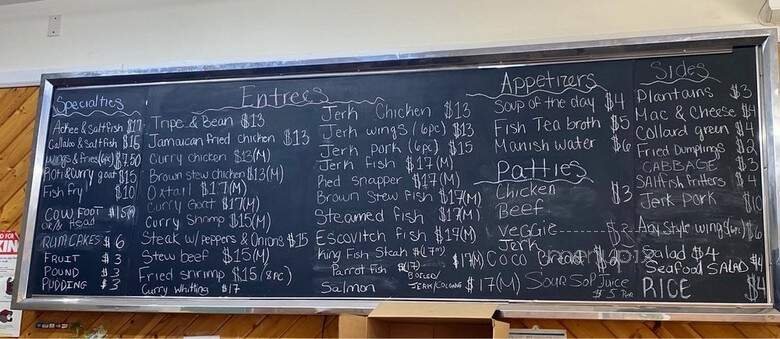 Specialties
Ackee & Saltfish $17
Callalo & Saltfish $15
Wings & Fries(6pc) $7.50
Roti & Curry goat $15
Fish Fry $10
COW FOOT $15(M)
or & Head
RUM CAKES $6
FRUIT $3
POUND $3
PUDDING $3
Entrees
Tripe & Bean $13
Jamaican fried chicken $13
Curry chicken $13(M)
Brown stew chicken $13(M)
Oxtail $17(M)
Curry Goat $17(M)
Curry Shrimp $15(M)
Steak w/ peppers & Onions $15
Stew beef $15(M)
Fried shrimp $15 (8pc)
Curry Whitting $17
Jerk Chicken $13
Jerk wings (6pc) $13
Jerk pork (6pc) $15
Jerk fish $17(M)
Red snapper $17(M)
Brown Stew fish $17(M)
Steamed fish $17(M)
Escovitch fish $17(M)
King Fish Steak $(17m)
Parrot Fish $(17) $17(M)
Salmon $17(M)
Appetizers
Soup of the day $4
Fish Tea broth $5
Manish water $6
Patties
Chicken $3
Beef
Veggie
Jerk
Coco Bread
Sour Sop Juice
$5
Sides
Plantains $3
Mac & Cheese $4
Collard green $4
Fried Dumplings $2
CABBAGE $3
Saltfish fritters $4
Jerk Pork $10
Any Style wings(6pc) $6
Salad $4
Seafood SALAD $4
RICE $4